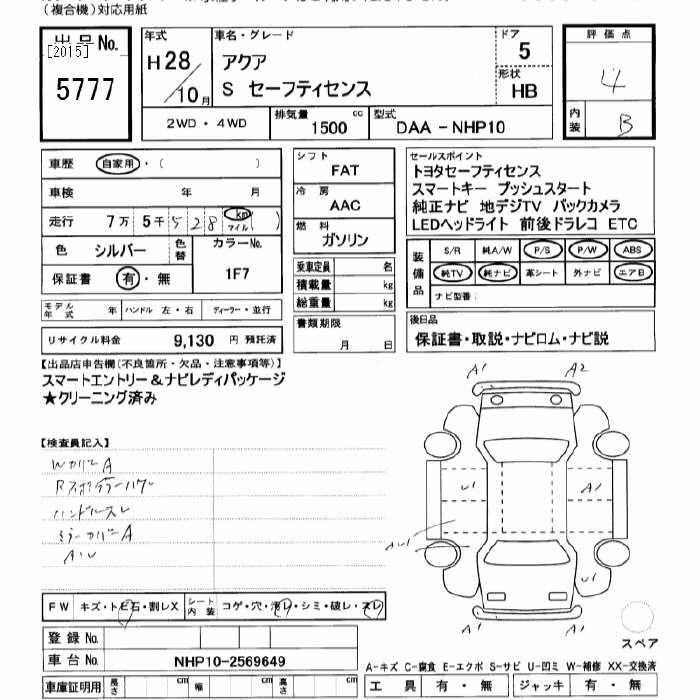 （複合機）対応用紙
出品No.
[2015]
5777
年式
H28/10月
車名・グレード
アクア
S セーフティセンス
ドア
5
形状
HB
評価点
4
内装
B
2WD・4WD
排気量
1500 cc
型式
DAA-NHP10
車歴 自家用・（ ）
車検 年 月
走行 7万 5千 528 km マイル ( )
色 シルバー
色替
カラーNo.
1F7
保証書 有・無
モデル年式 年
ハンドル 左・右
ディーラー・並行
リサイクル料金 9,130 円 預託済
シフト
FAT
冷房
AAC
燃料
ガソリン
乗車定員 名
積載量 kg
総重量 kg
書類期限
月 日
セールスポイント
トヨタセーフティセンス
スマートキー プッシュスタート
純正ナビ 地デジTV バックカメラ
LEDヘッドライト 前後ドラレコ ETC
装備品
S/R 純A/W P/S P/W ABS
純TV 純ナビ 革シート 外ナビ エアB
ナビ型番：
後日品
保証書・取説・ナビロム・ナビ説
【出品店申告欄(不良箇所・欠品・注意事項等)】
スマートエントリー＆ナビレディパッケージ
★クリーニング済み
【検査員記入】
WカバーA
ハンドルスレ
ミラーカバーA
A1U
A1 A2
U1 A1
AU1
U1
A1
スペア
FW キズ・トビ石・割レX
シート内装 コゲ・穴・汚レ・シミ・破レ・スレ
登録 No.
車台 No. NHP10-2569649
車庫証明用 長さ cm 幅 cm 高さ cm
A-キズ C-腐食 E-エクボ S-サビ U-凹ミ W-補修 XX-交換済
工具 有・無 ジャッキ 有・無